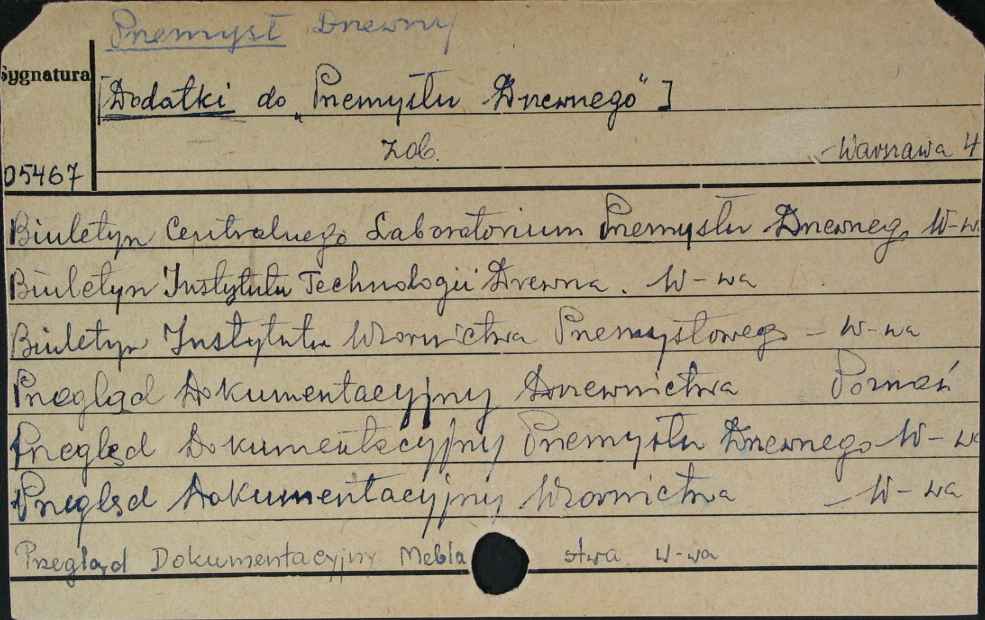 Przemysł Drzewny
Sygnatura
[Dodatki do „Przemysłu Drzewnego"]
zob. - Warszawa 4
05467
Biuletyn Centralnego Laboratorium Przemysłu Drzewnego W-wa
Biuletyn Instytutu Technologii Drewna. W-wa
Biuletyn Instytutu Wzornictwa Przemysłowego - W-wa
Przegląd Dokumentacyjny Drzewnictwa Poznań
Przegląd Dokumentacyjny Przemysłu Drzewnego W-wa
Przegląd Dokumentacyjny Wzornictwa - W-wa
Przegląd Dokumentacyjny Mebla stwa W-wa